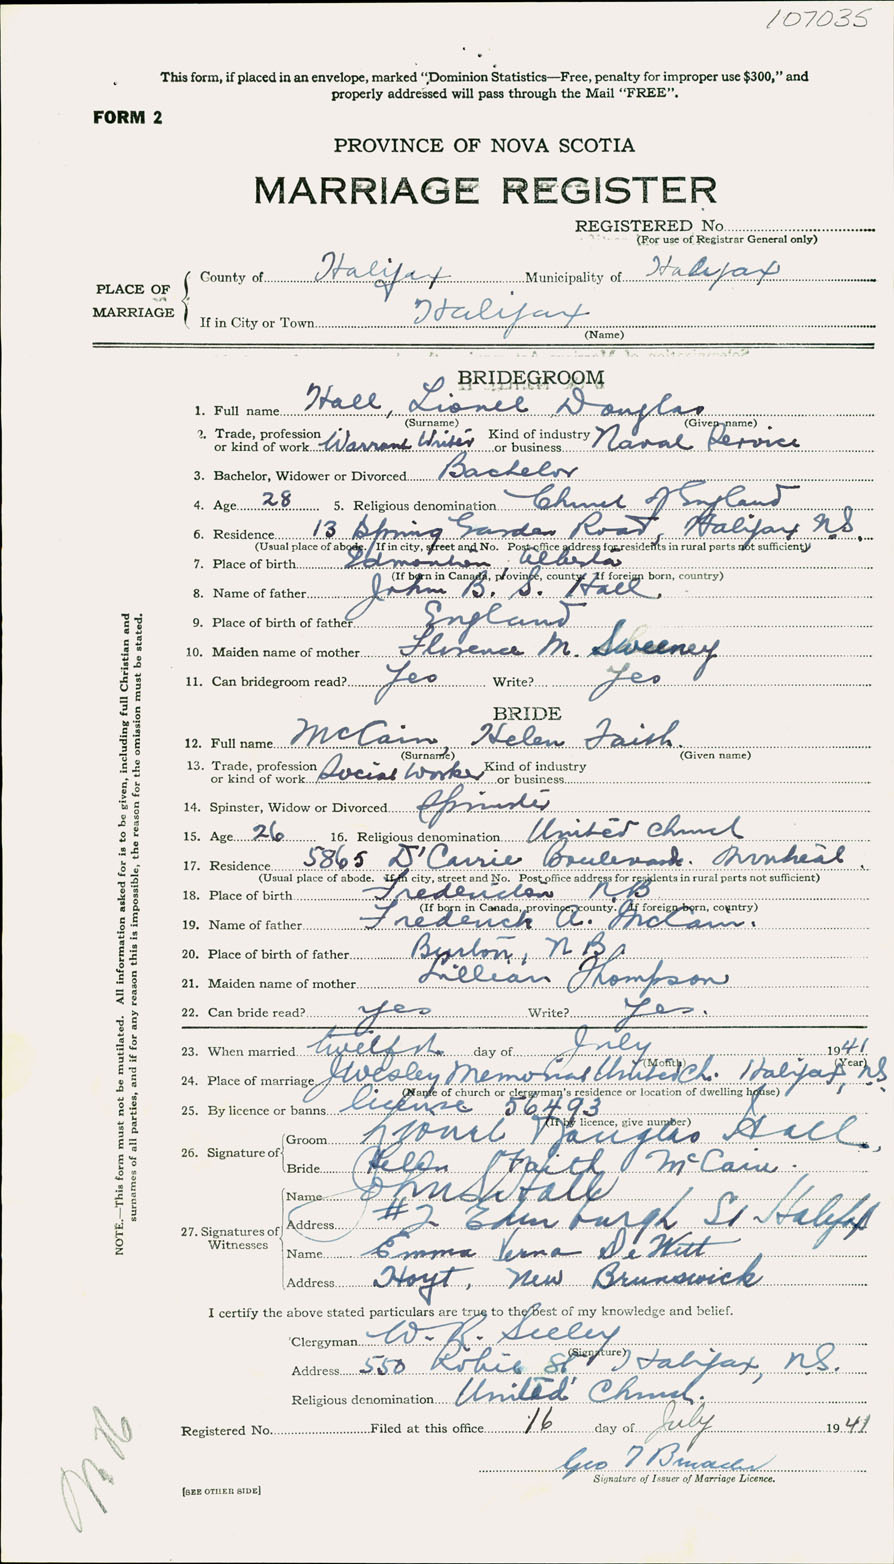 107035
This form, if placed in an envelope, marked "Dominion Statistics—Free, penalty for improper use $300," and
properly addressed will pass through the Mail "FREE".
FORM 2
PROVINCE OF NOVA SCOTIA
MARRIAGE REGISTER
REGISTERED No.
(For use of Registrar General only)
PLACE OF MARRIAGE
County of Halifax Municipality of Halifax
If in City or Town Halifax
(Name)
BRIDEGROOM
1. Full name Hall, Lionel Douglas
(Surname) (Given name)
2. Trade, profession or kind of work Warrant Writer Kind of industry or business Naval Service
3. Bachelor, Widower or Divorced Bachelor
4. Age 28 5. Religious denomination Church of England
6. Residence 13 Spring Garden Road, Halifax N.S.
(Usual place of abode. If in city, street and No. Post office address for residents in rural parts not sufficient)
7. Place of birth Edmonton, Alberta
(If born in Canada, province, county. If foreign born, country)
8. Name of father John B. S. Hall
9. Place of birth of father England
10. Maiden name of mother Florence M. Sweeney
11. Can bridegroom read? Yes Write? Yes
BRIDE
12. Full name McCain, Helen Faith.
(Surname) (Given name)
13. Trade, profession or kind of work Social Worker Kind of industry or business
14. Spinster, Widow or Divorced Spinster
15. Age 26 16. Religious denomination United Church
17. Residence 5865 D'Carrie Boulevard. Montreal.
(Usual place of abode. If in city, street and No. Post office address for residents in rural parts not sufficient)
18. Place of birth Fredericton N.B
(If born in Canada, province, county. If foreign born, country)
19. Name of father Frederick A. McCain.
20. Place of birth of father Burton, N.B.
21. Maiden name of mother Lillian Thompson
22. Can bride read? yes Write? Yes.
23. When married twelfth day of July 1941
(Month) (Year)
24. Place of marriage J Wesley Memorial United Ch. Halifax, N.S.
(Name of church or clergyman's residence or location of dwelling house)
25. By licence or banns license 56493
(If by licence, give number)
26. Signature of Groom Lionel Douglas Hall.
Bride Helen Faith McCain.
27. Signatures of Witnesses Name John S Hall
Address #2 Edinburgh St Halifax
Name Emma Verna DeWitt
Address Hoyt, New Brunswick
I certify the above stated particulars are true to the best of my knowledge and belief.
Clergyman W. R. Seeley
(Signature)
Address 550 Robie St Halifax, N.S.
Religious denomination United Church.
Registered No. Filed at this office 16 day of July 1941
Geo
Signature of Issuer of Marriage Licence.
[SEE OTHER SIDE]
NOTE.—This form must not be mutilated. All information asked for is to be given, including full Christian and
surnames of all parties, and if for any reason this is impossible, the reason for the omission must be stated.